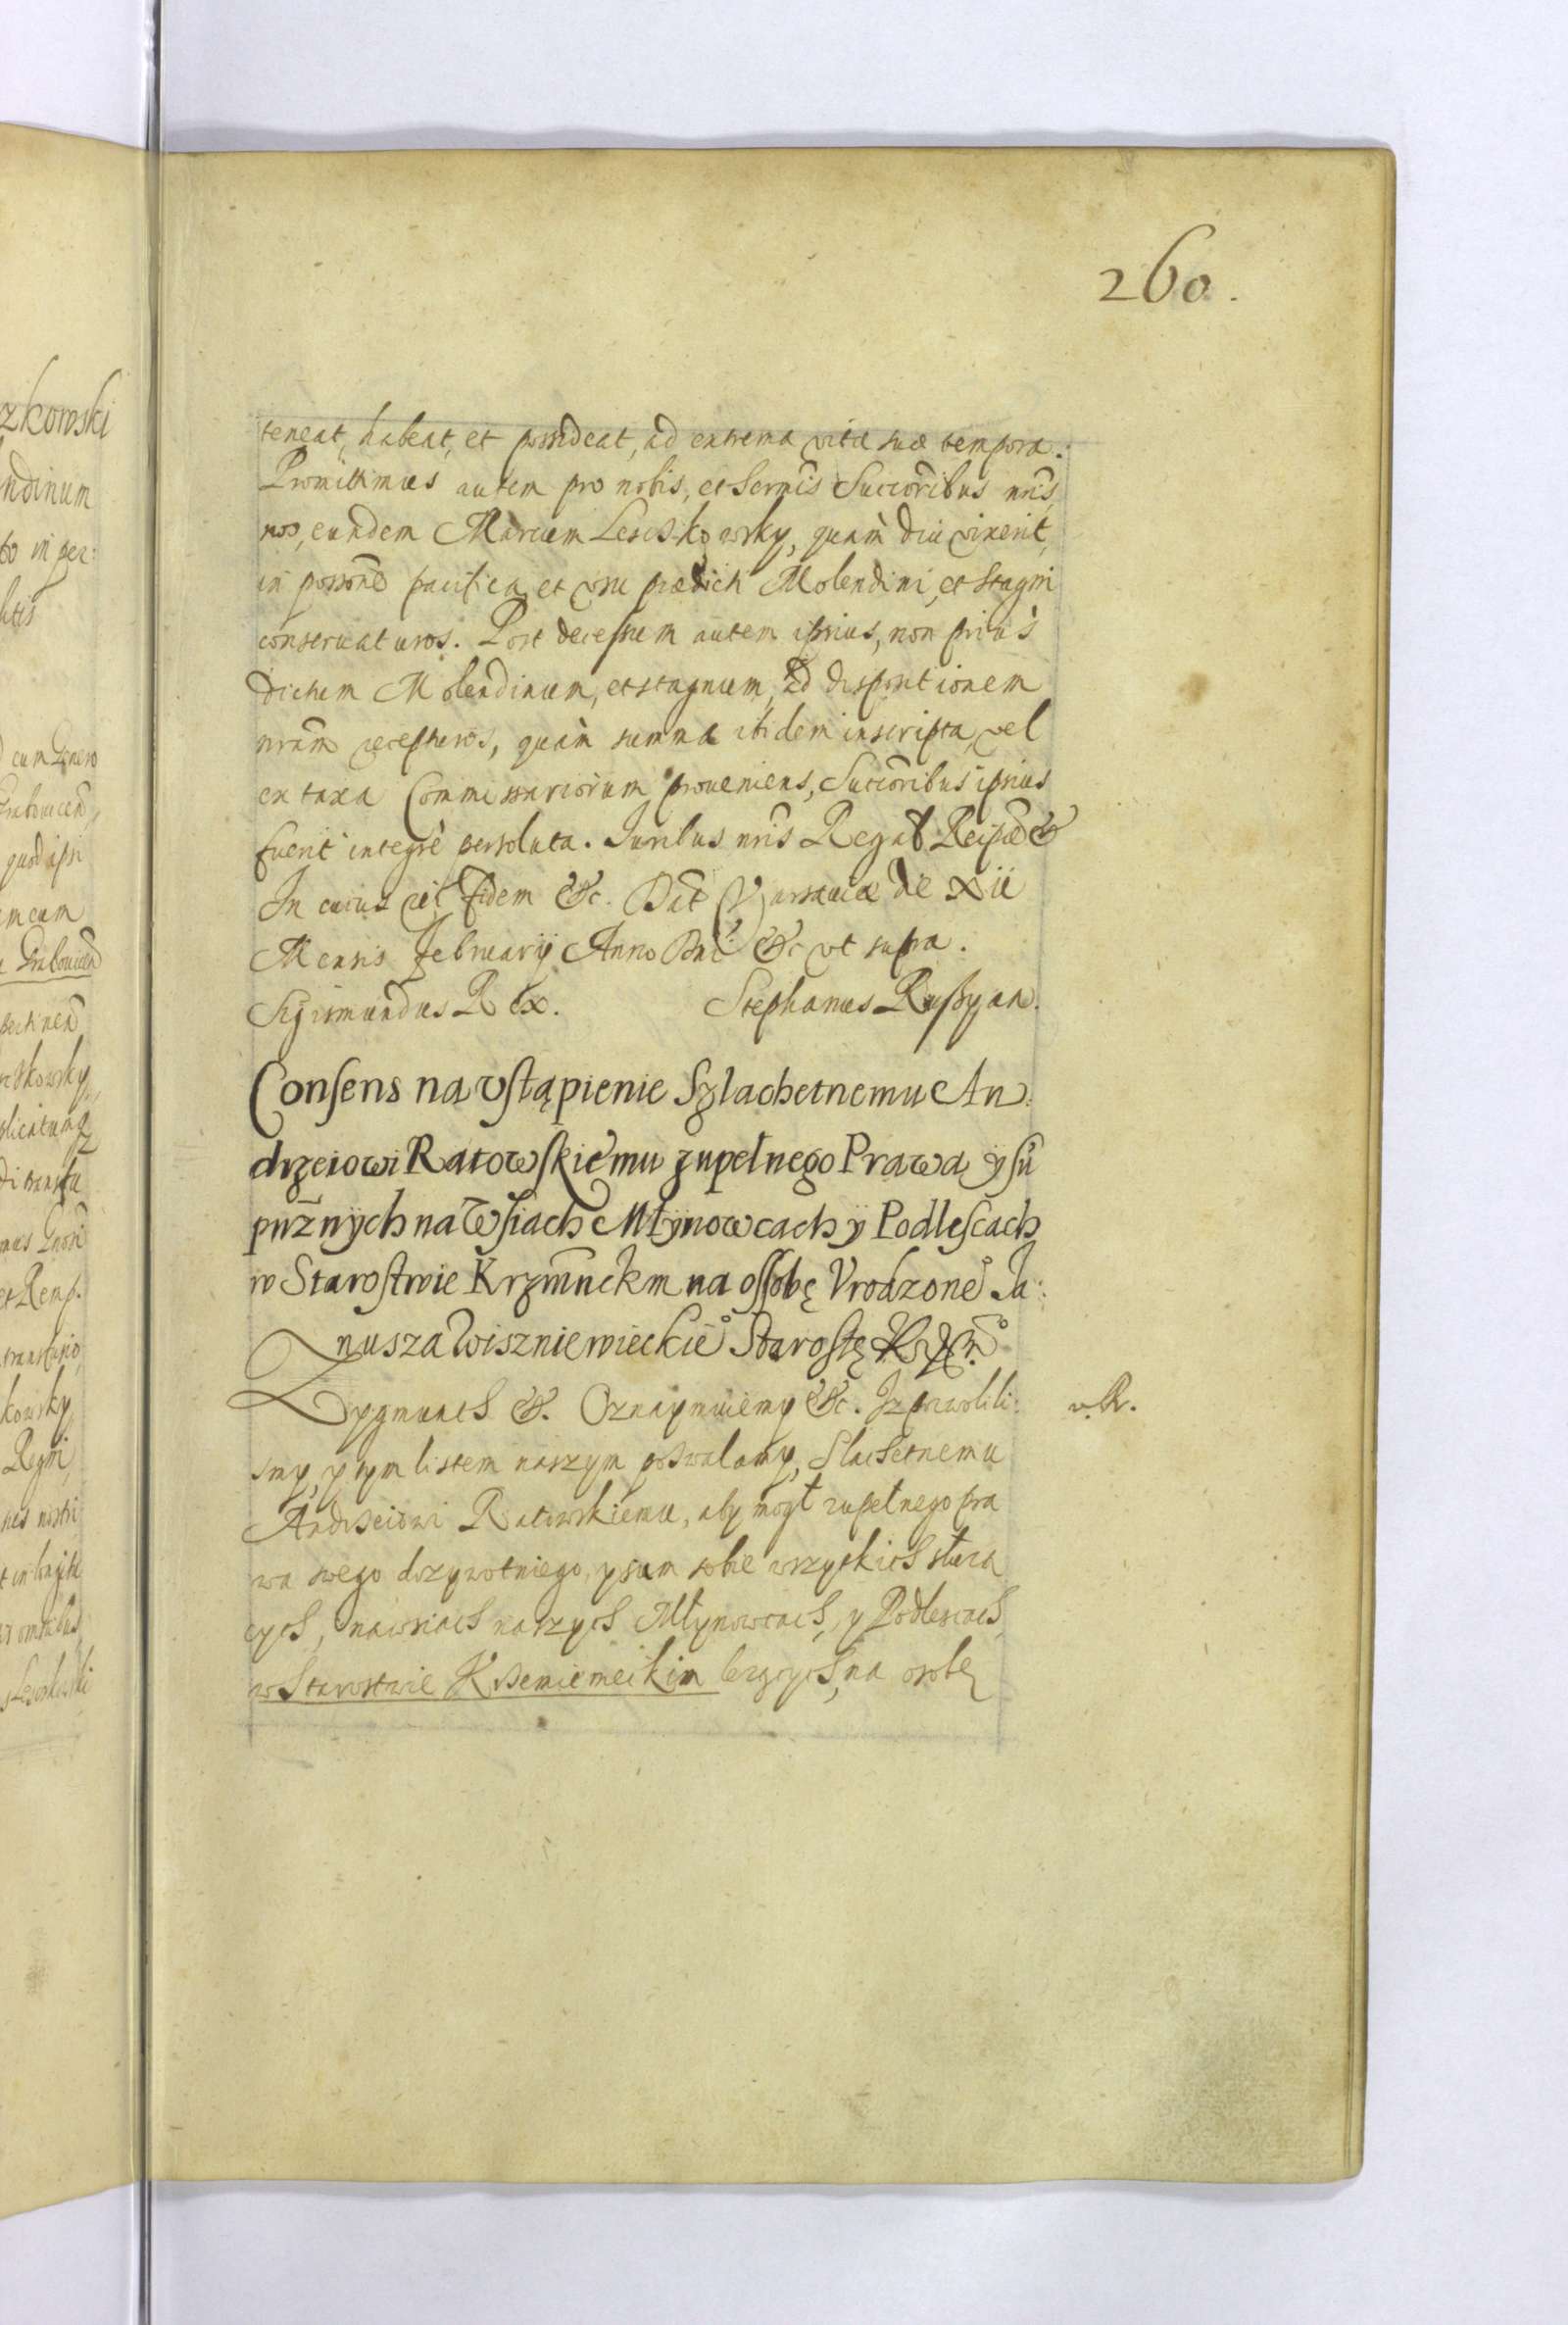 260.
teneat, habeat, et possideat, ad extrema vitæ suæ tempora.
Promittimus autem pro nobis, et Sermis Succoribus nris,
nos, eundem Marcum Lesczkowsky, quam diu vixerit,
in possone pacifica et usu prædicti Molendini, et stagni
conservaturos. Post decessum autem ipsius, non prius
dictum Molendinum, et stagnum, ad dispositionem
nram recepturos, quam summa ibidem inscripta, vel
ex taxa Commissariorum proveniens, Succoribus ipsius
fuerit integrè persoluta. Iuribus nris Regal Reipcæ &
In cuius rei fidem &c. Dat Varsaviæ die XII
Mensis February Anno Dni &c ut supra.
Sigismundus Rex. Stephanus
Consens na Ustąpienie Szlachetnemu An:
drzeiowi Ratowskiemu zupełnego Prawa y su
puznych na Wsiach Młynowcach y Podlescach
w Starostwie Krzmnckm na ossobę Urodzone Ja:
nusza Wiszniewieckie Starostę
Zygmunth &. Oznaymuiemy &c. Iz pozwolili: v. R.
smy, y tym listem naszym poswalamy, Slachetnemu
Andrzeiowi Ratowskiemu, aby mogł zupełnego pra
wa swego dozywotniego, y sum sobie wszystkich słuzą
cych, na wsiach naszych Młynowcach, y Podlescach,
w Starostwie Krzemienieckim lezących, na osobę
zkowski
ndinum
to in per:
latis
cum
quod ipsi
kowsky
Regni